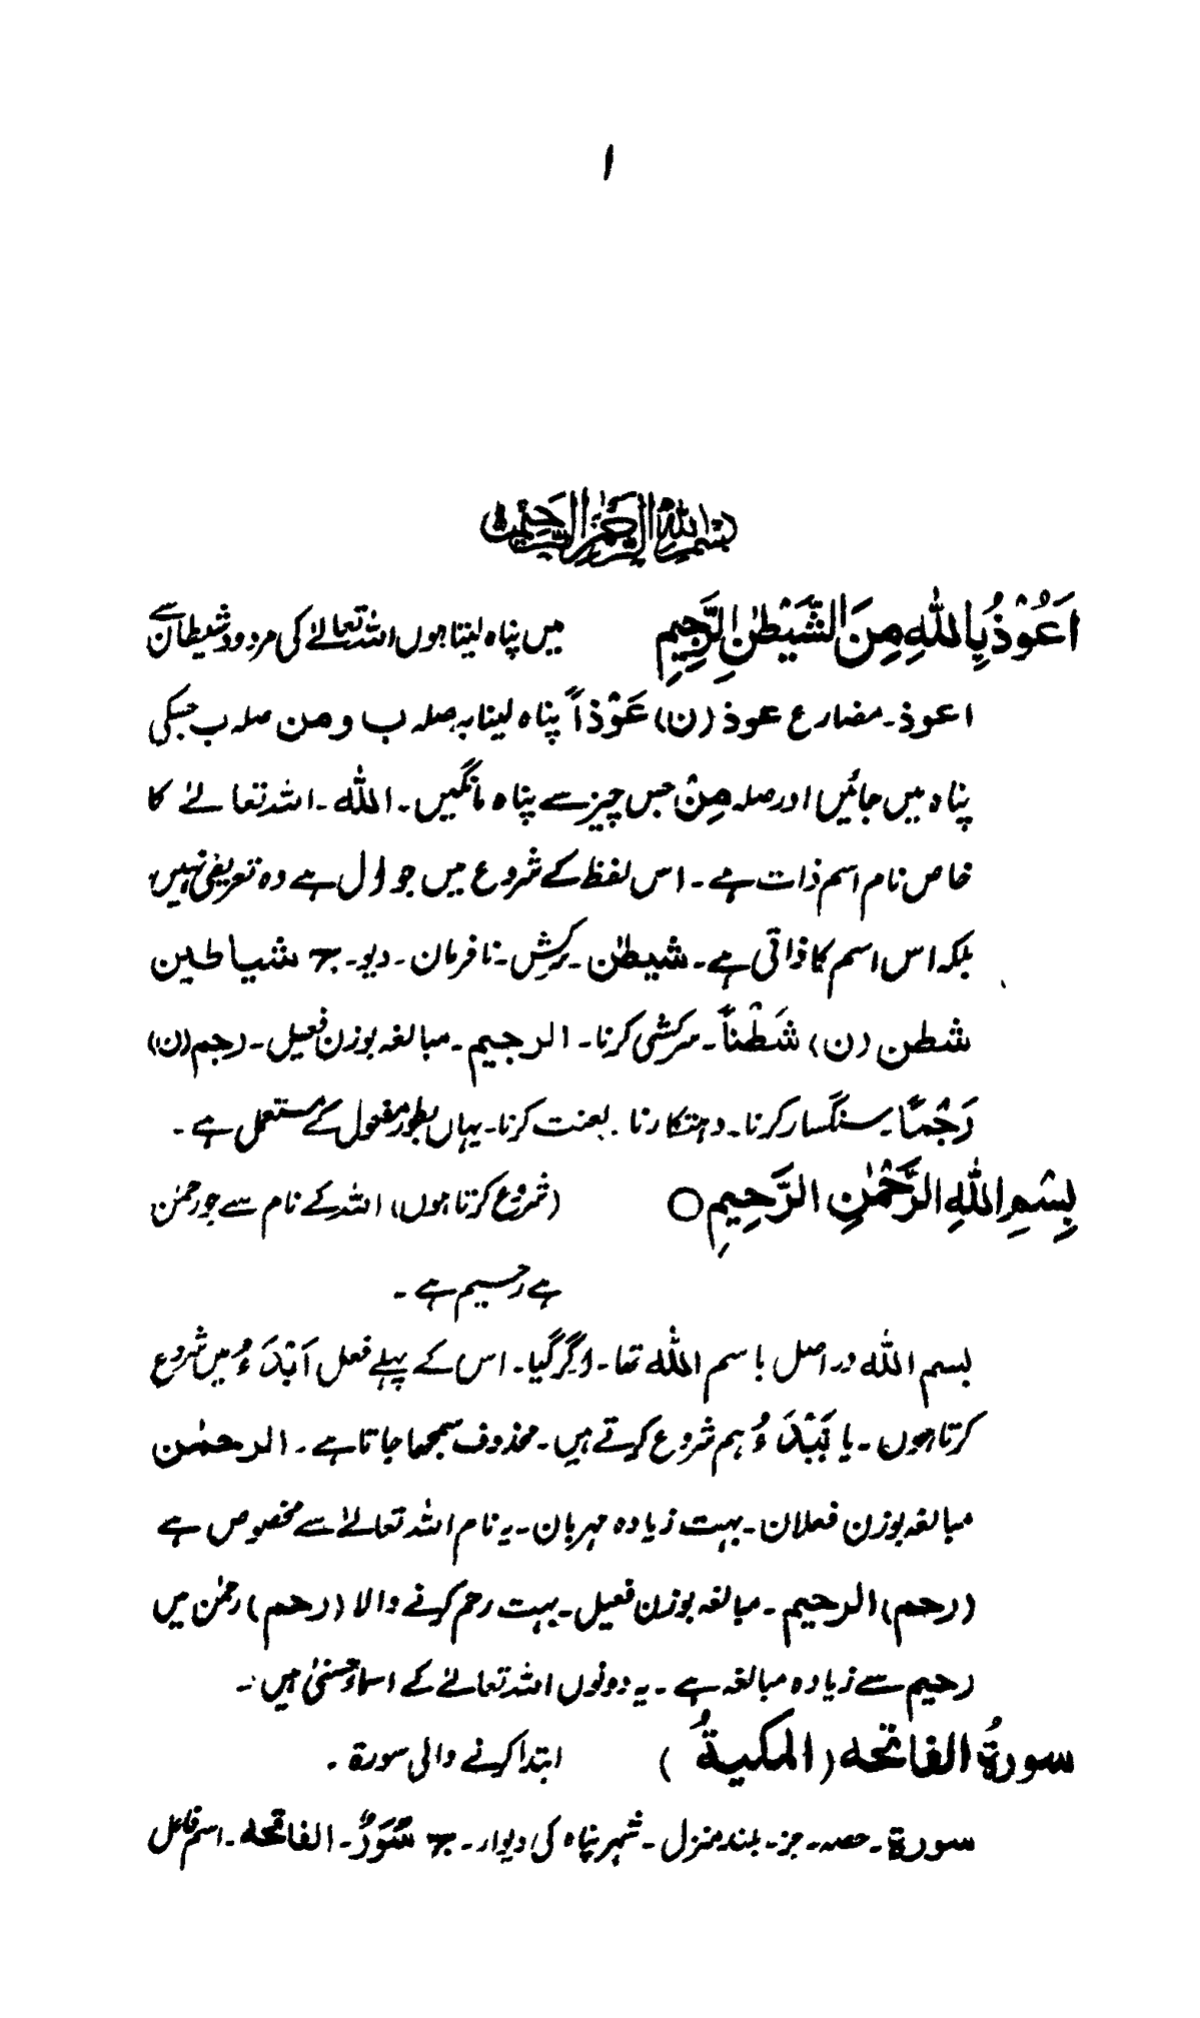 ۱
بسم اللہ الرحمن الرحیم
اَعُوْذُ بِاللّٰهِ مِنَ الشَّيْطٰنِ الرَّجِيْمِ میں پناہ لیتا ہوں اللہ تعالےٰ کی مردود شیطان سے
اعوذ۔ مضارع عوذ (ن) عَوْذاً پناہ لینا بہ صلہ ب و من صلہ ب جسکی
پناہ میں جائیں اور صلہ مِنْ جس چیز سے پناہ مانگیں۔ اللّٰہ۔ اللہ تعالےٰ کا
خاص نام اسم ذات ہے۔ اس لفظ کے شروع میں جو ال ہے وہ تعریفی نہیں
بلکہ اس اسم کا ذاتی ہے۔ شیطٰن۔ سرکش۔ نافرمان۔ دیو۔ ج شیاطین
شطن (ن) شَطْناً۔ سرکشی کرنا۔ الرجیم۔ مبالغہ بوزن فعیل۔ رجم (ن)
رَجْمًا۔ سنگسار کرنا۔ دھتکارنا۔ لعنت کرنا۔ یہاں بطور مفعول کے مستعمل ہے۔
بِسْمِ اللّٰهِ الرَّحْمٰنِ الرَّحِيْمِ ○ (شروع کرتا ہوں) اللہ کے نام سے جو رحمٰن
ہے رحیم ہے۔
بسم اللّٰہ در اصل باسم اللّٰہ تھا۔ ا گر گیا۔ اس کے پہلے فعل اَبْدَءُ میں شروع
کرتا ہوں۔ یا نَبْدَءُ ہم شروع کرتے ہیں۔ محذوف سمجھا جاتا ہے۔ الرحمٰن
مبالغہ بوزن فعلان۔ بہت زیادہ مہربان۔ یہ نام اللہ تعالےٰ سے مخصوص ہے
(رحم) الرحیم۔ مبالغہ بوزن فعیل۔ بہت رحم کرنے والا (رحم) رحمٰن میں
رحیم سے زیادہ مبالغہ ہے۔ یہ دونوں اللہ تعالےٰ کے اسماء حسنیٰ ہیں۔
سورۃُ الفاتحہ (المکیۃُ) ابتدا کرنے والی سورۃ۔
سورۃ۔ حصہ۔ جز۔ بلند منزل۔ شہر پناہ کی دیوار۔ ج سُوَرٌ۔ الفاتحہ۔ اسم فاعل